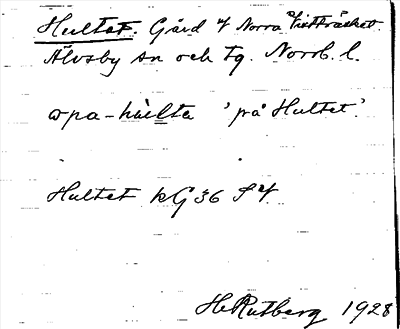 Hultet. Gård i Norra Vistträsket.
Älvsby sn och tg. Norrb. l.
ɷpa-hùlta 'på Hultet'.
Hultet kG 36 S
H Rutberg 1928